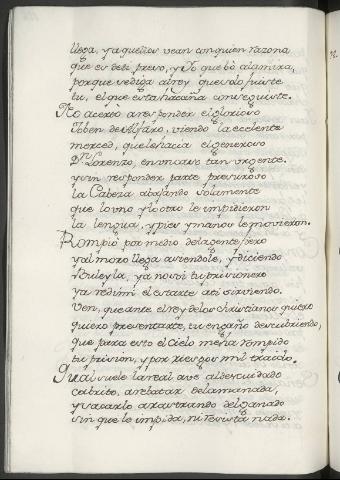 llega, y aquellos vean con quien razona
que es desi preso, y Yo que dò alamira,
porque se diga al rey que solo fuiste
tu, el que esta hazaña conseguiste.
No acerto a responder el glorioso
Joben de , viendo la eccelente
merced, que le hacia el generoso
Dn Lorenzo, en un caso tan urgente.
y sin responder parte presuroso
la Cabeza abaxando solamente
que lo uno y lo otro le impidieron
la lengua, y pies y manos le movieron.
Rompiò por medio dela gente fiero
y al moro llega asiendole, y diciendo
Buleyla, ya no soi tu prisionero
ya redimi el estarte a ti sirviendo.
Ven, que ante el rey delos christianos quiero
quiero presentarte, tu engaño descubriendo,
que para esto el Cielo me ha rompido
tu prision, y por riesgos mil traido.
Qual suele la real ave al descuidado
cabrito, arrebatar de la manada,
y sacarlo arrastrando del ganado
sin que le impida, ni resista nada.